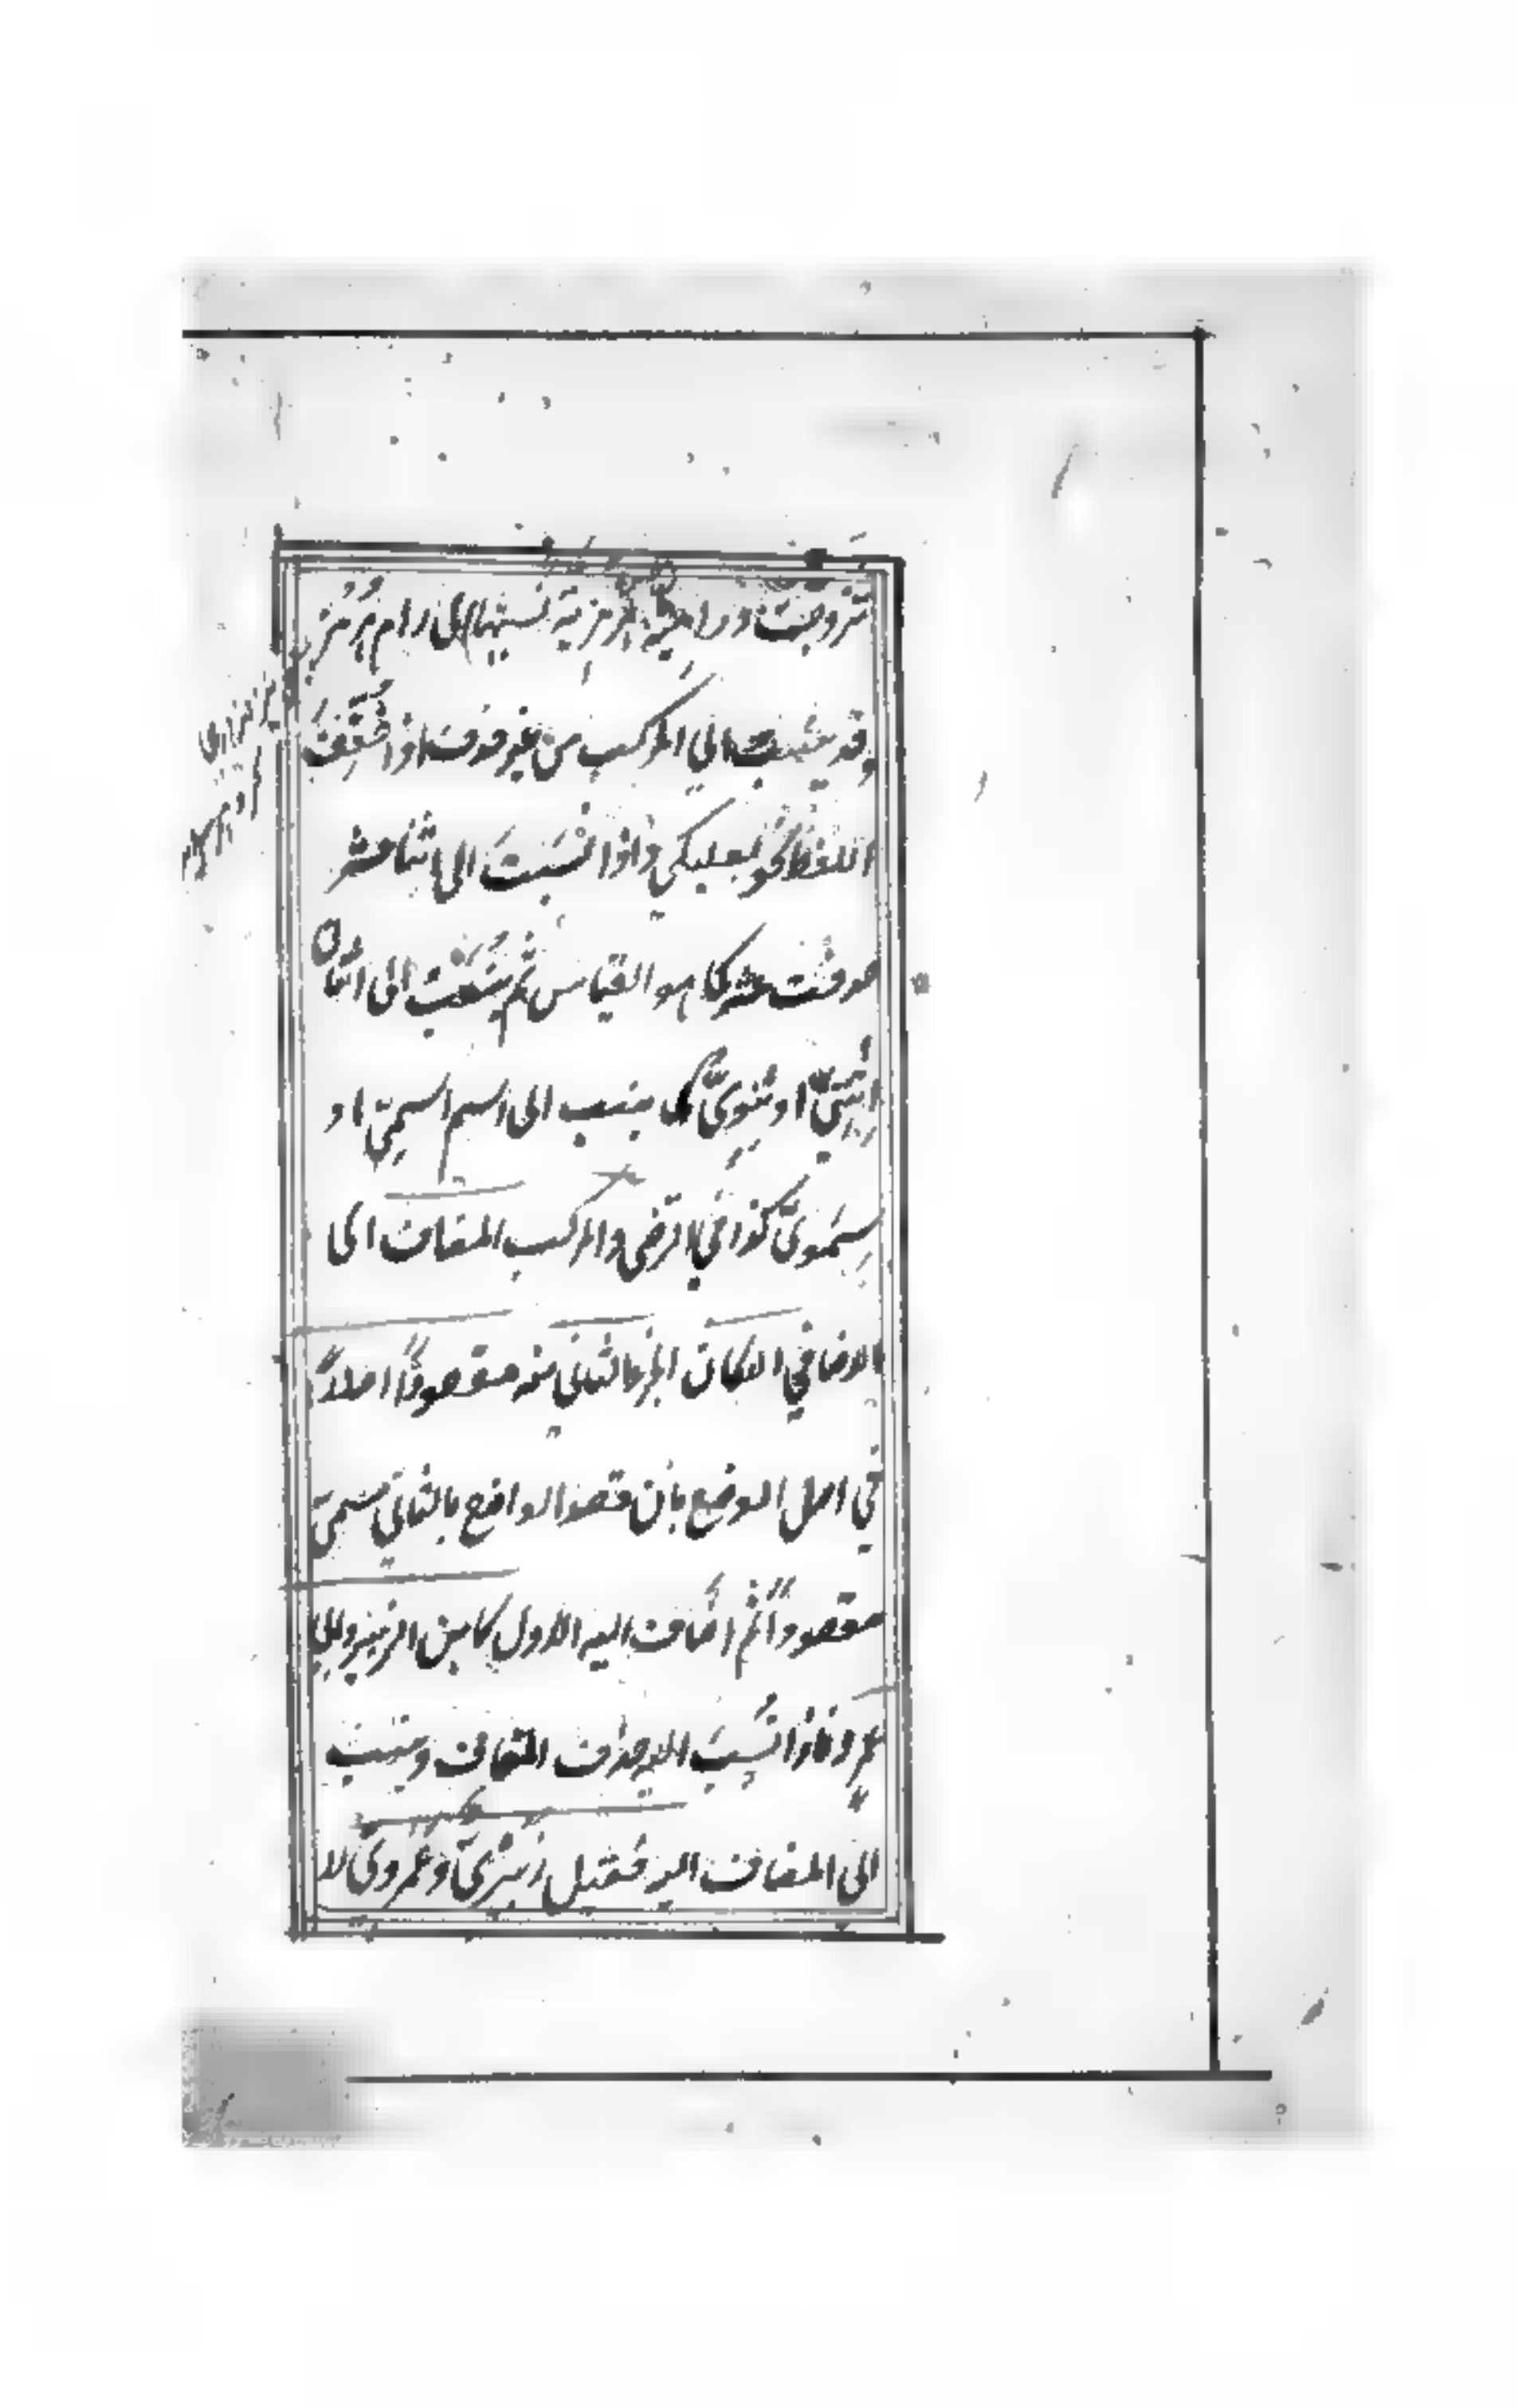 تزوجت ورامية هرمزية نسبتها الى رام هرمز
وقد ينسب الى المركب من غير حذف اذا خفف
اللفظ نحو بعلبكي واذا نسبت الى اثنا عشر
حذفت عشر كما هو القياس ثم ينسب الى اثنان
اثنيّ او ثنويّ كما ينسب الى اسم اسميّ او
سموىّ كذا في الرضى والمركب المضاف الى
الاضافي ان كان الجزء الثاني منه مقصودًا اصلاً
في اصل الوضع بان قصد الواضع بالثاني مسمى
مقصودًا ثم اضاف اليه الاول كابن الزبير وابى
عمرو فاذا نسبت اليه حذف المضاف وينسب
الى المضاف اليه فقيل زبيرىّ وعمروىّ لا